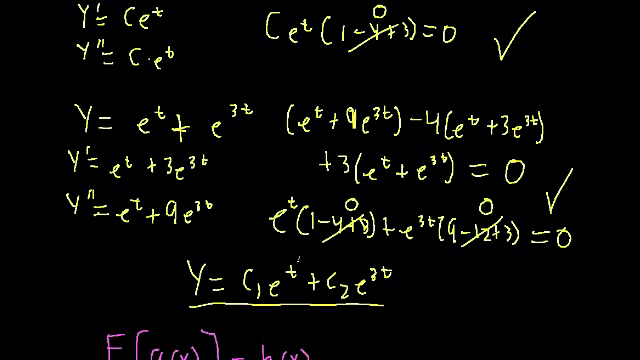 Y' = Ce^t
Y'' = C·e^t
Ce^t(1-4+3)=0 ✓
0
Y = e^t + e^3t (e^t+9e^3t)-4(e^t+3e^3t)
Y' = e^t + 3e^3t +3(e^t+e^3t) = 0 ✓
Y'' = e^t + 9e^3t e^t(1-4+3)+e^3t(9-12+3) = 0
0 0
Y = C₁e^t + C₂e^3t